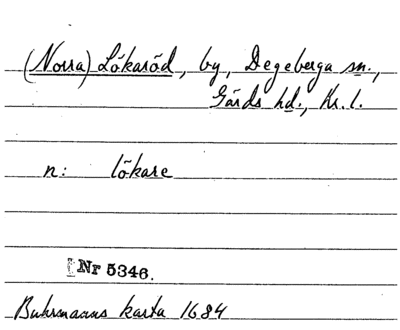 (Norra) Lökaröd, by, Degeberga sn.,
Gärds hd., Kr. l.
n: lökare
Nr 5346.
Buhrmanns karta 1684